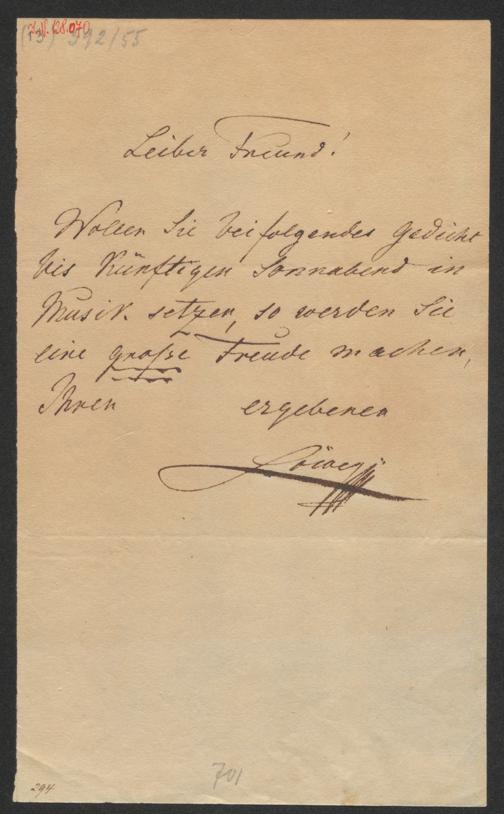 I.N. 128.070
(13) 392/55
Leiber Freund!
Wollen Sie beifolgendes Gedicht
bis künftigen Sonnabend in
Musik setzen, so werden Sie
eine große Freude machen,
Ihren ergebenen
701
294